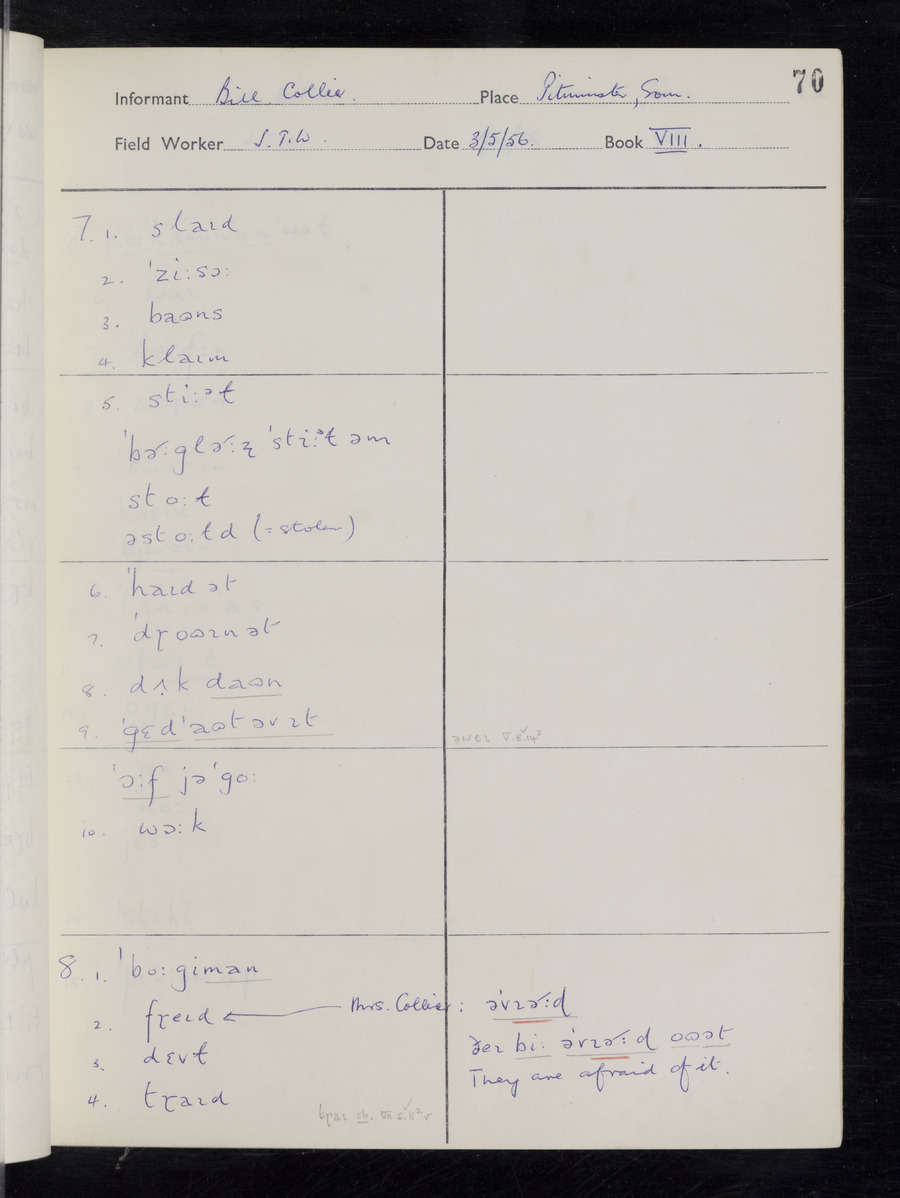 70
Informant Bill Collier. Place Pitminster, Som.
Field Worker S.T.W. Date 3/5/56. Book VIII.
7. 1. slaɪd
2. ˈziːsɔː
3. baʊns
4. klaɪm
5. stiːᵊɫ
ˈbəʳːgləʳːz̩ ˈstiːᵊɫ əm
stoːɫ
əstoːɫd (= stolen)
6. ˈhaɪd ət
7. ˈdɽoʊɪn ət
8. dʌ̣k daʊn
9. ˈgɛd ˈaʊt əv ɪt
əweɪ V.8.14³
ˈɔːf jəˈgoː
10. wɔːk
8. 1. ˈboːgiman
2. fɽeɪd
Mrs. Collier: əˈvɪəʳːd
3. dɛvɫ
ðeɪ biː əˈvɪəʳːd oʊət
They are afraid of it.
4. tɽaɪd